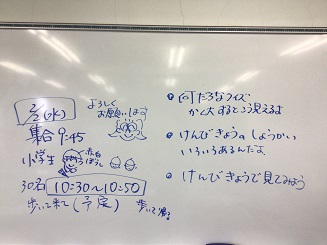 2/2(水)
よろしく
お願いします
集合 9:45
小学生
赤白
ぼうし
30名 10:30〜10:50
歩いて来て(予定) 歩いて帰る
• 何だろなクイズ
かく大するとこう見えるよ
• けんびきょうのしょうかい
いろいろあるんだよ
• けんびきょうで見てみよう